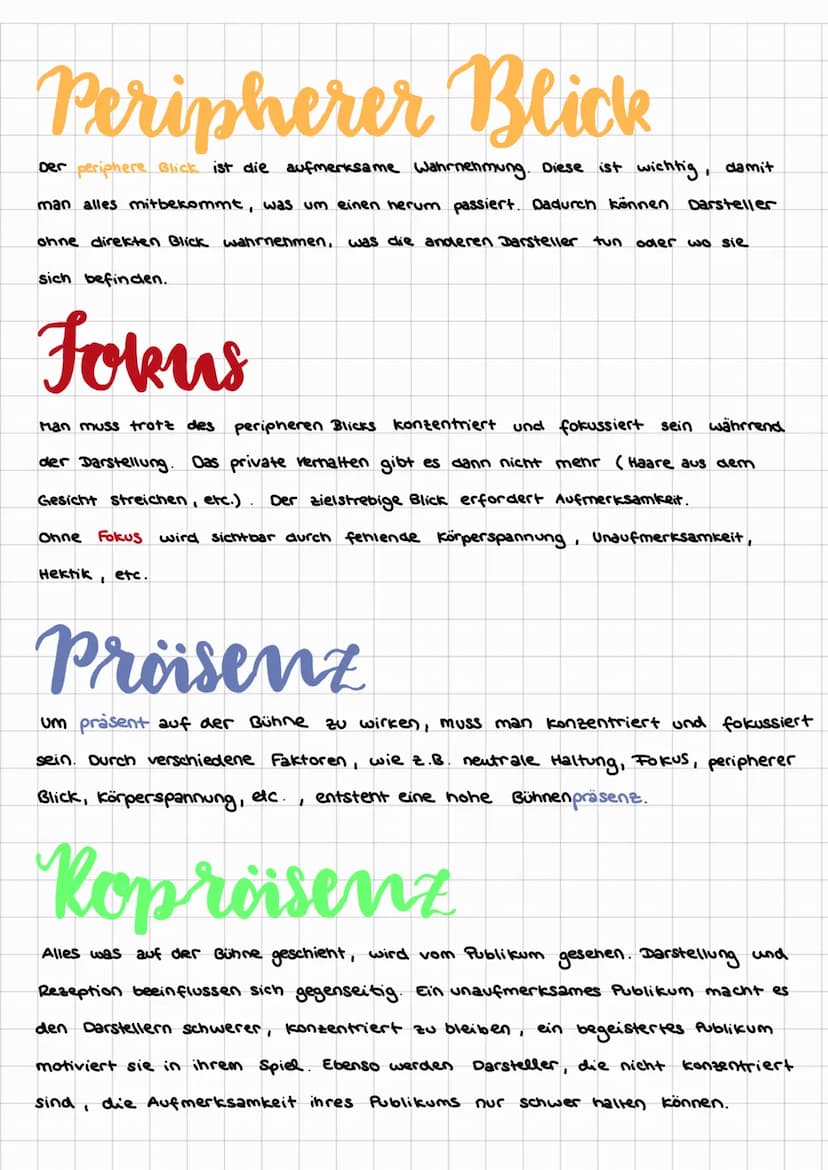 Peripherer Blick
Der periphere Blick ist die aufmerksame Wahrnehmung. Diese ist wichtig, damit
man alles mitbekommt, was um einen herum passiert. Dadurch können Darsteller
ohne direkten Blick wahrnehmen, was die anderen Darsteller tun oder wo sie
sich befinden.
Fokus
Man muss trotz des peripheren Blicks konzentriert und fokussiert sein während
der Darstellung. Das private Verhalten gibt es dann nicht mehr (Haare aus dem
Gesicht streichen, etc.). Der zielstrebige Blick erfordert Aufmerksamkeit.
Ohne Fokus wird sichtbar durch fehlende Körperspannung, Unaufmerksamkeit,
Hektik, etc.
Präsenz
Um präsent auf der Bühne zu wirken, muss man konzentriert und fokussiert
sein. Durch verschiedene Faktoren, wie z.B. neutrale Haltung, Fokus, peripherer
Blick, Körperspannung, etc., entsteht eine hohe Bühnenpräsenz.
Kopräsenz
Alles was auf der Bühne geschieht, wird vom Publikum gesehen. Darstellung und
Rezeption beeinflussen sich gegenseitig. Ein unaufmerksames Publikum macht es
den Darstellern schwerer, konzentriert zu bleiben, ein begeistertes Publikum
motiviert sie in ihrem Spiel. Ebenso werden Darsteller, die nicht konzentriert
sind, die Aufmerksamkeit ihres Publikums nur schwer halten können.